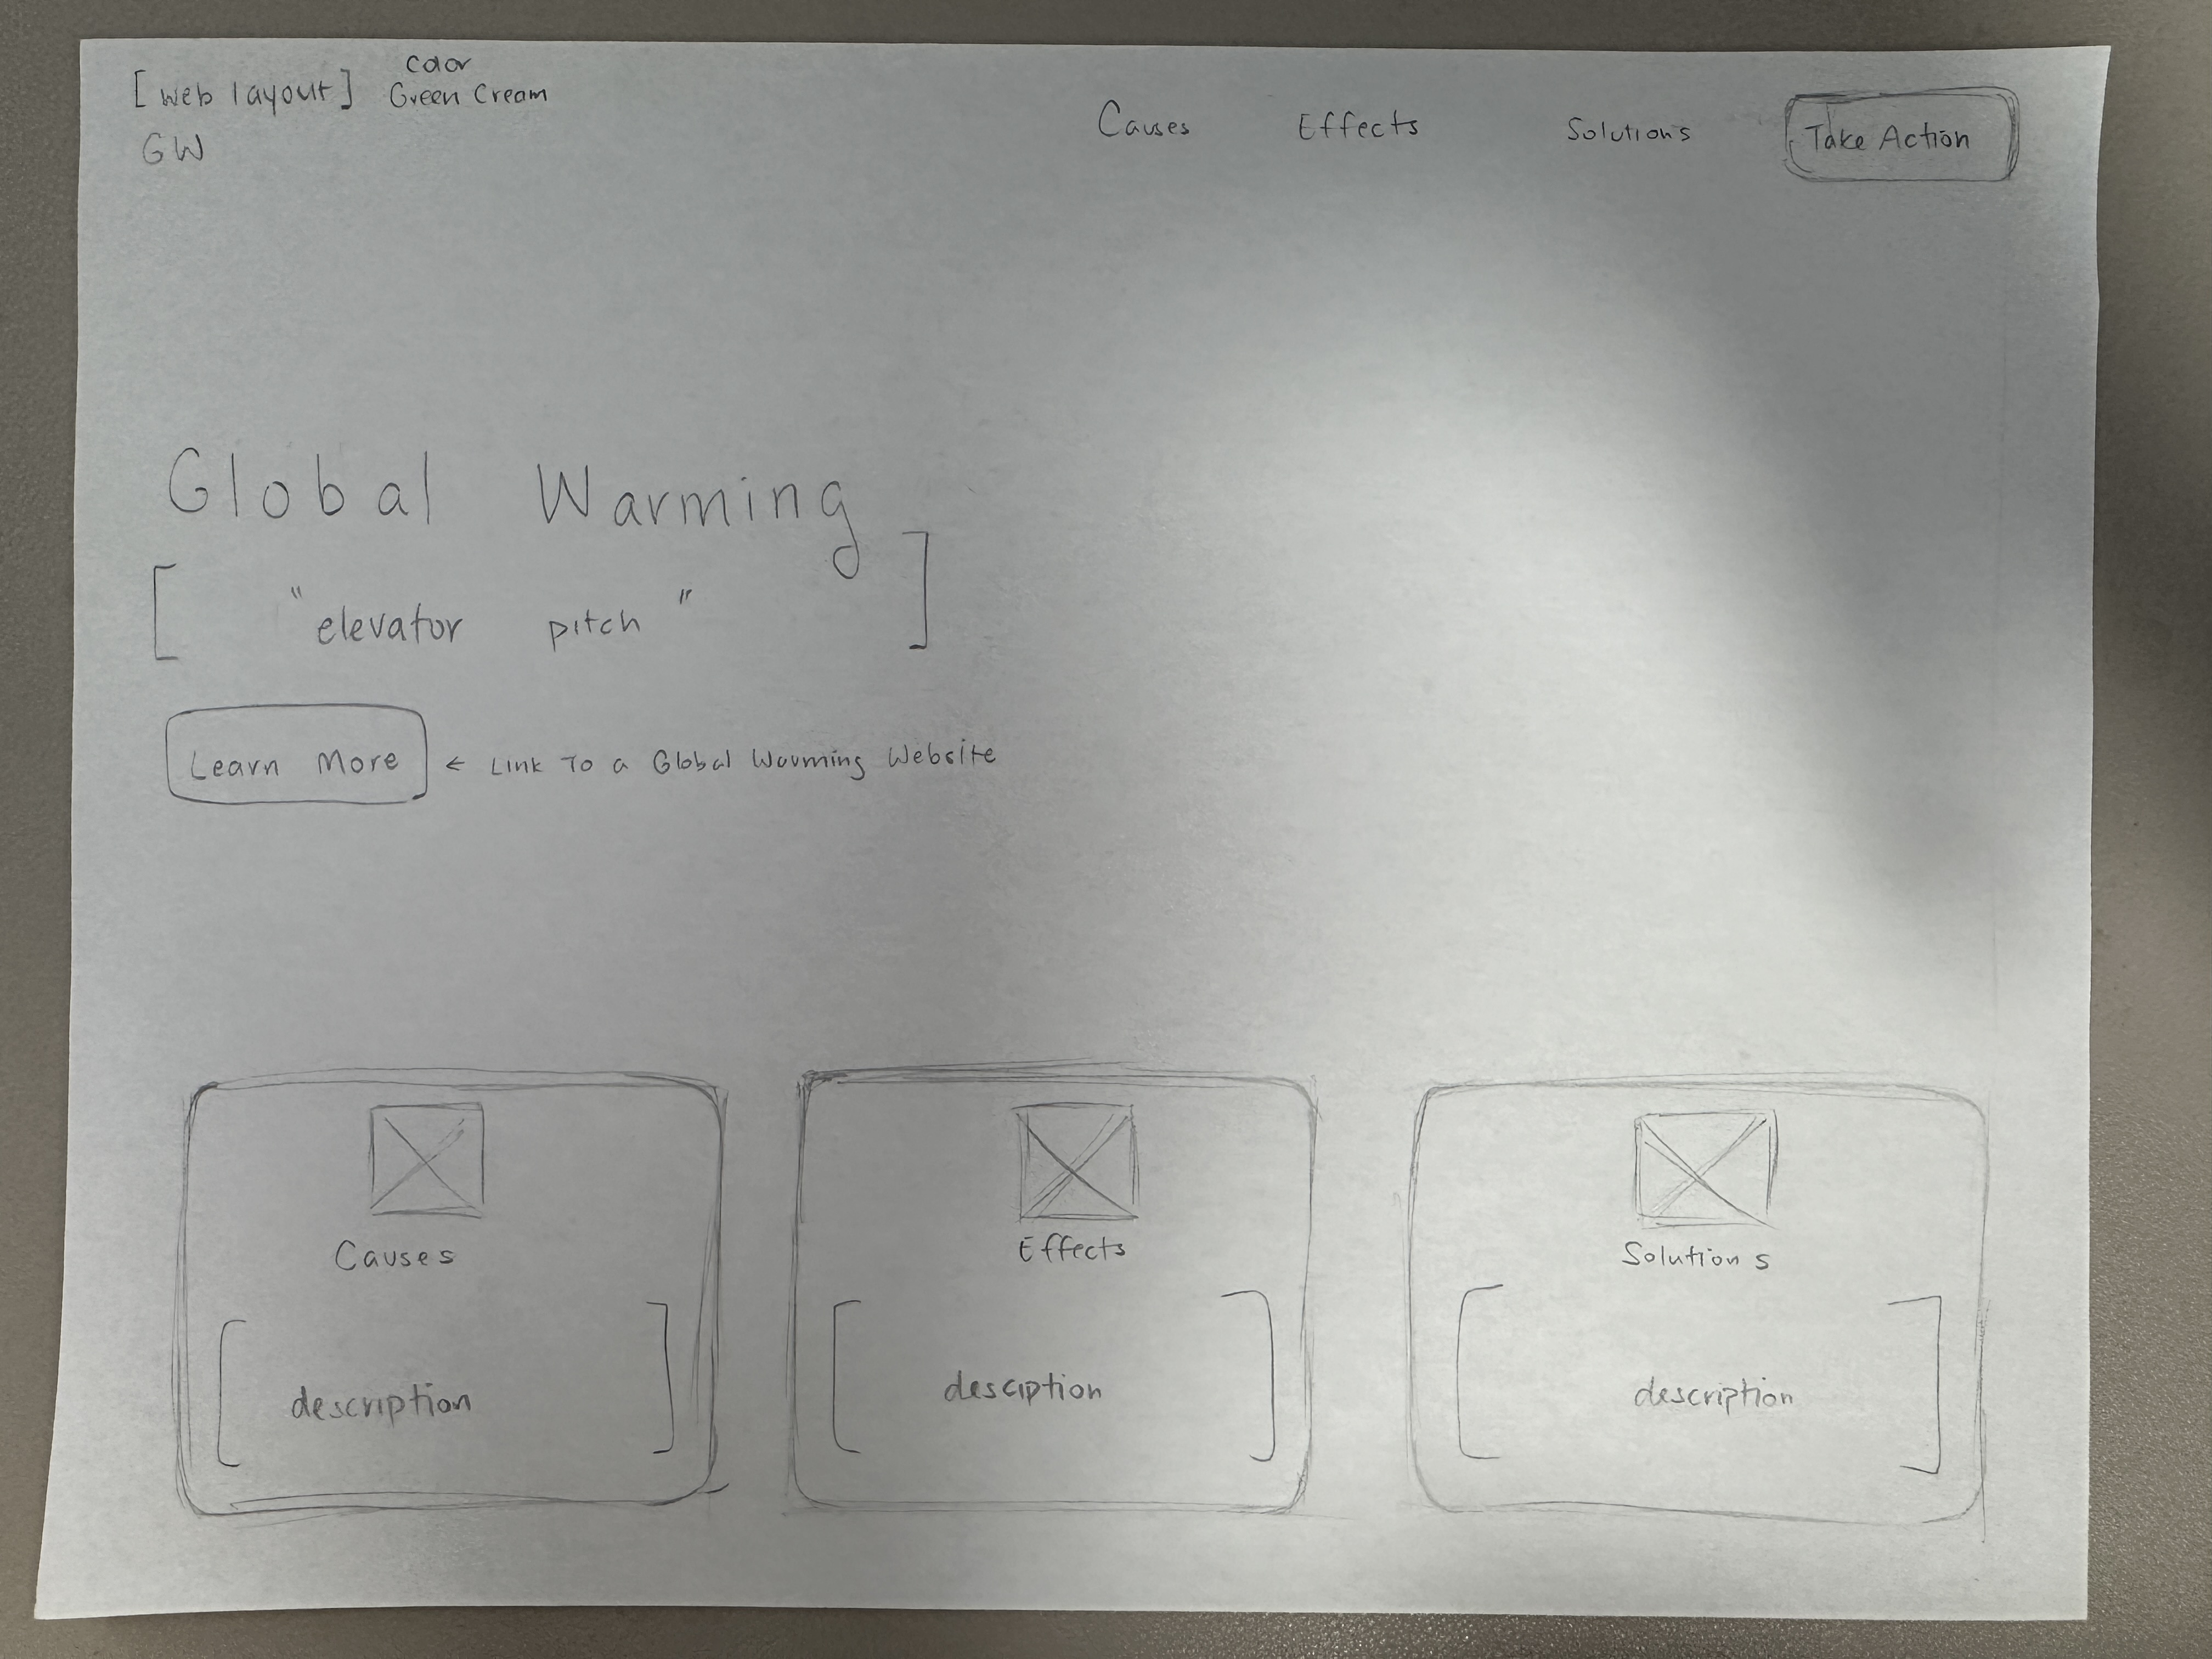 [web layout] color
Green Cream
GW
Causes Effects Solutions Take Action
Global Warming
[ "elevator pitch" ]
Learn More ← Link To a Global Warming Website
Causes Effects Solutions
[ description ] [ desciption ] [ description ]